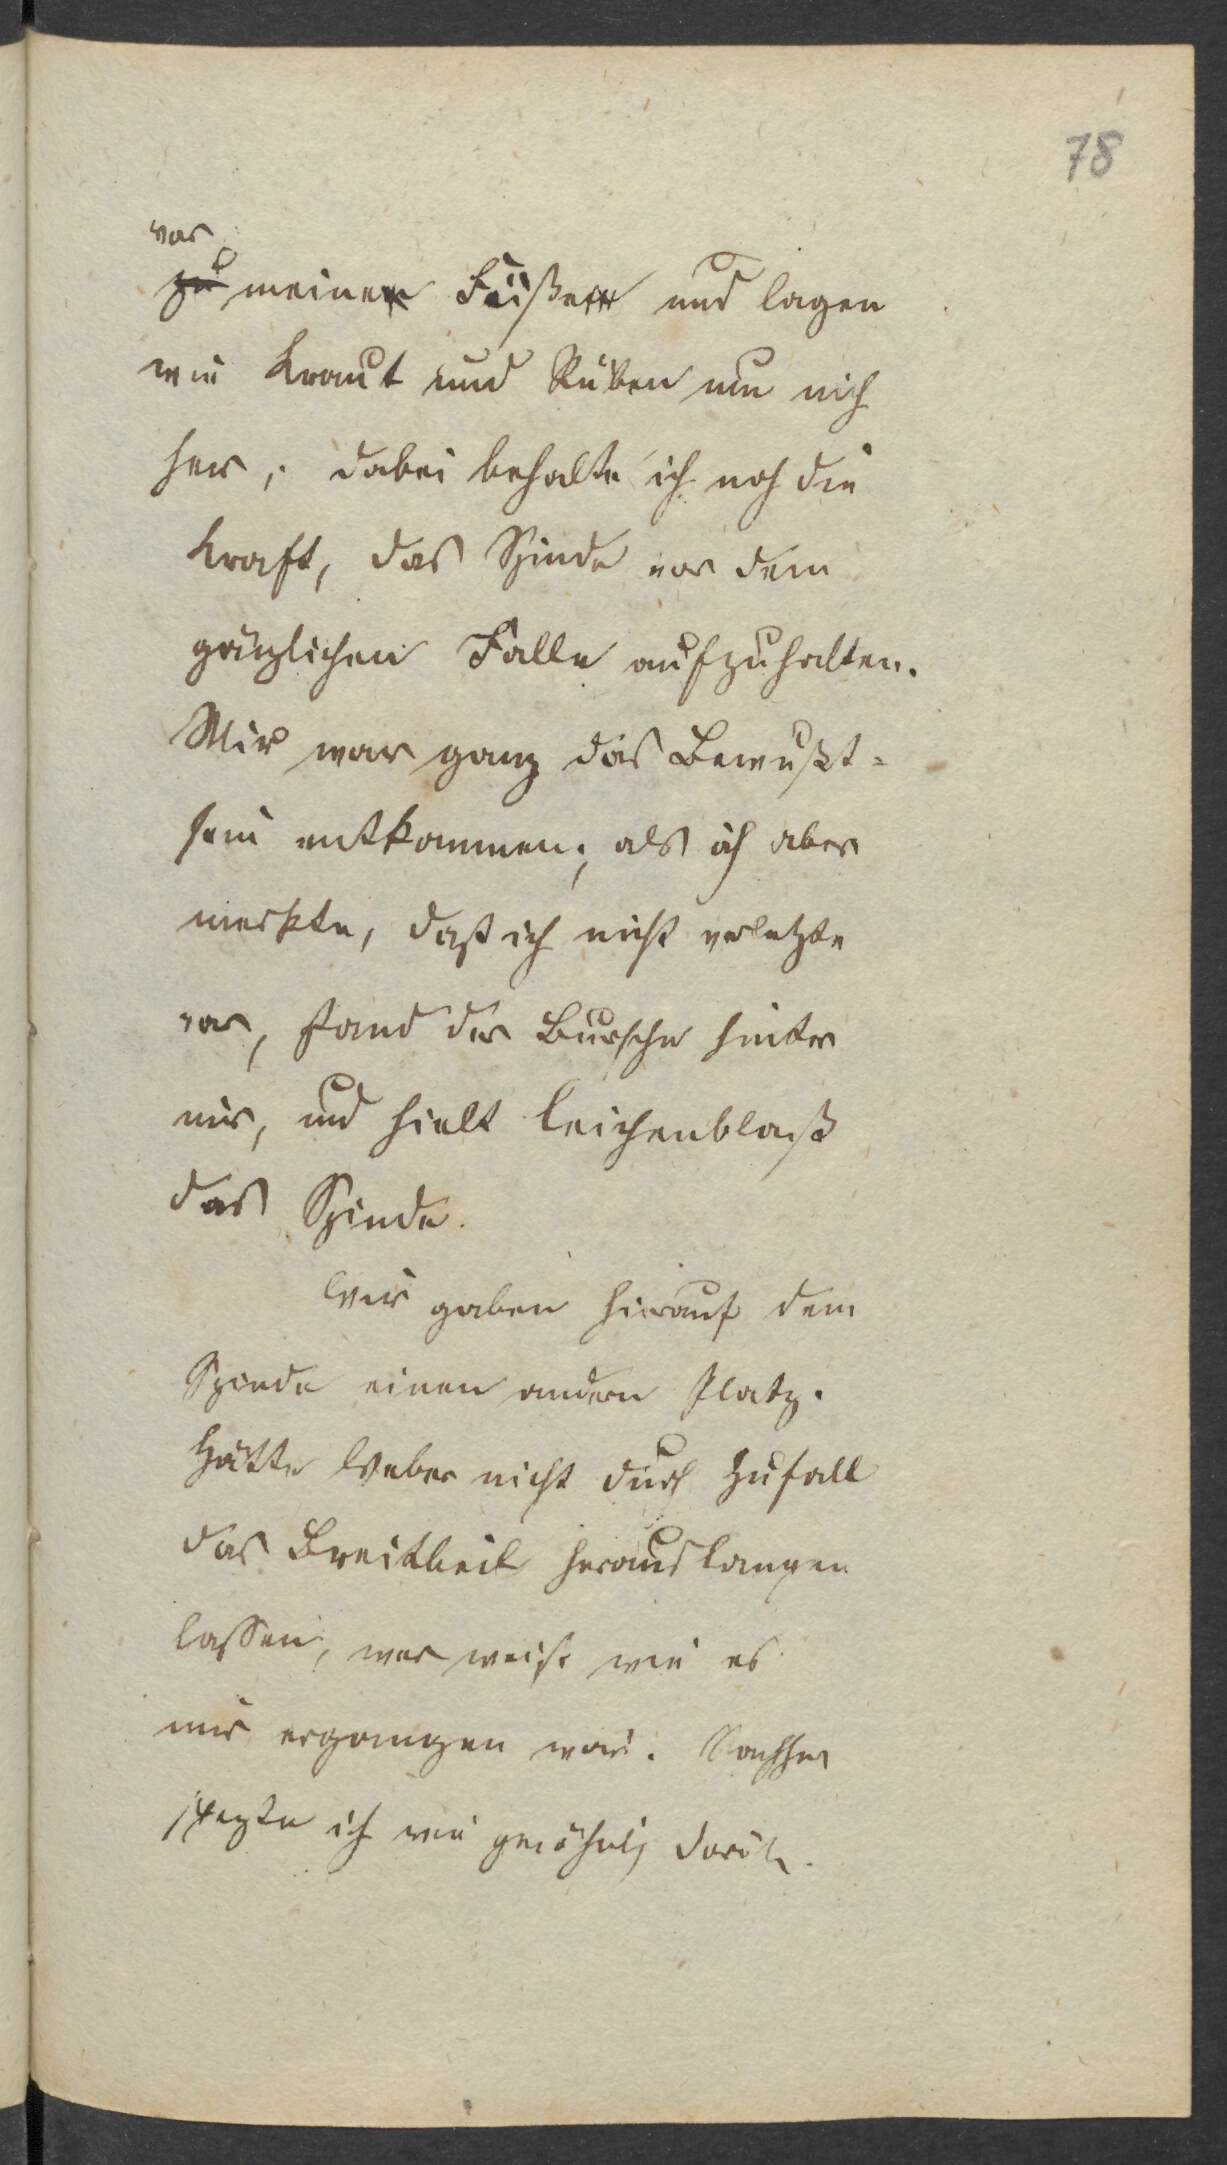 78
vor
zu meinen Füßen und lagen
wie Kraut und Rüben um mich
her, dabei behalte ich noch die
Kraft, das Spinde vor dem
gänzlichen Falle aufzuhalten.
Mir war ganz das Bewußt-
sein entkommen; als ich aber
merkte, daß ich nicht verletzt
war, stand der Bursche hinter
mir, und hielt leichenblaß
das Spinde.
Wir gaben hierauf dem
Spinde einen andern Platz.
Hätte Weber nicht durch Zufall
das Breitbeil herauslangen
lassen, wer weiß wie es
mir ergangen wär. Nachher
ich wie gewöhnlich